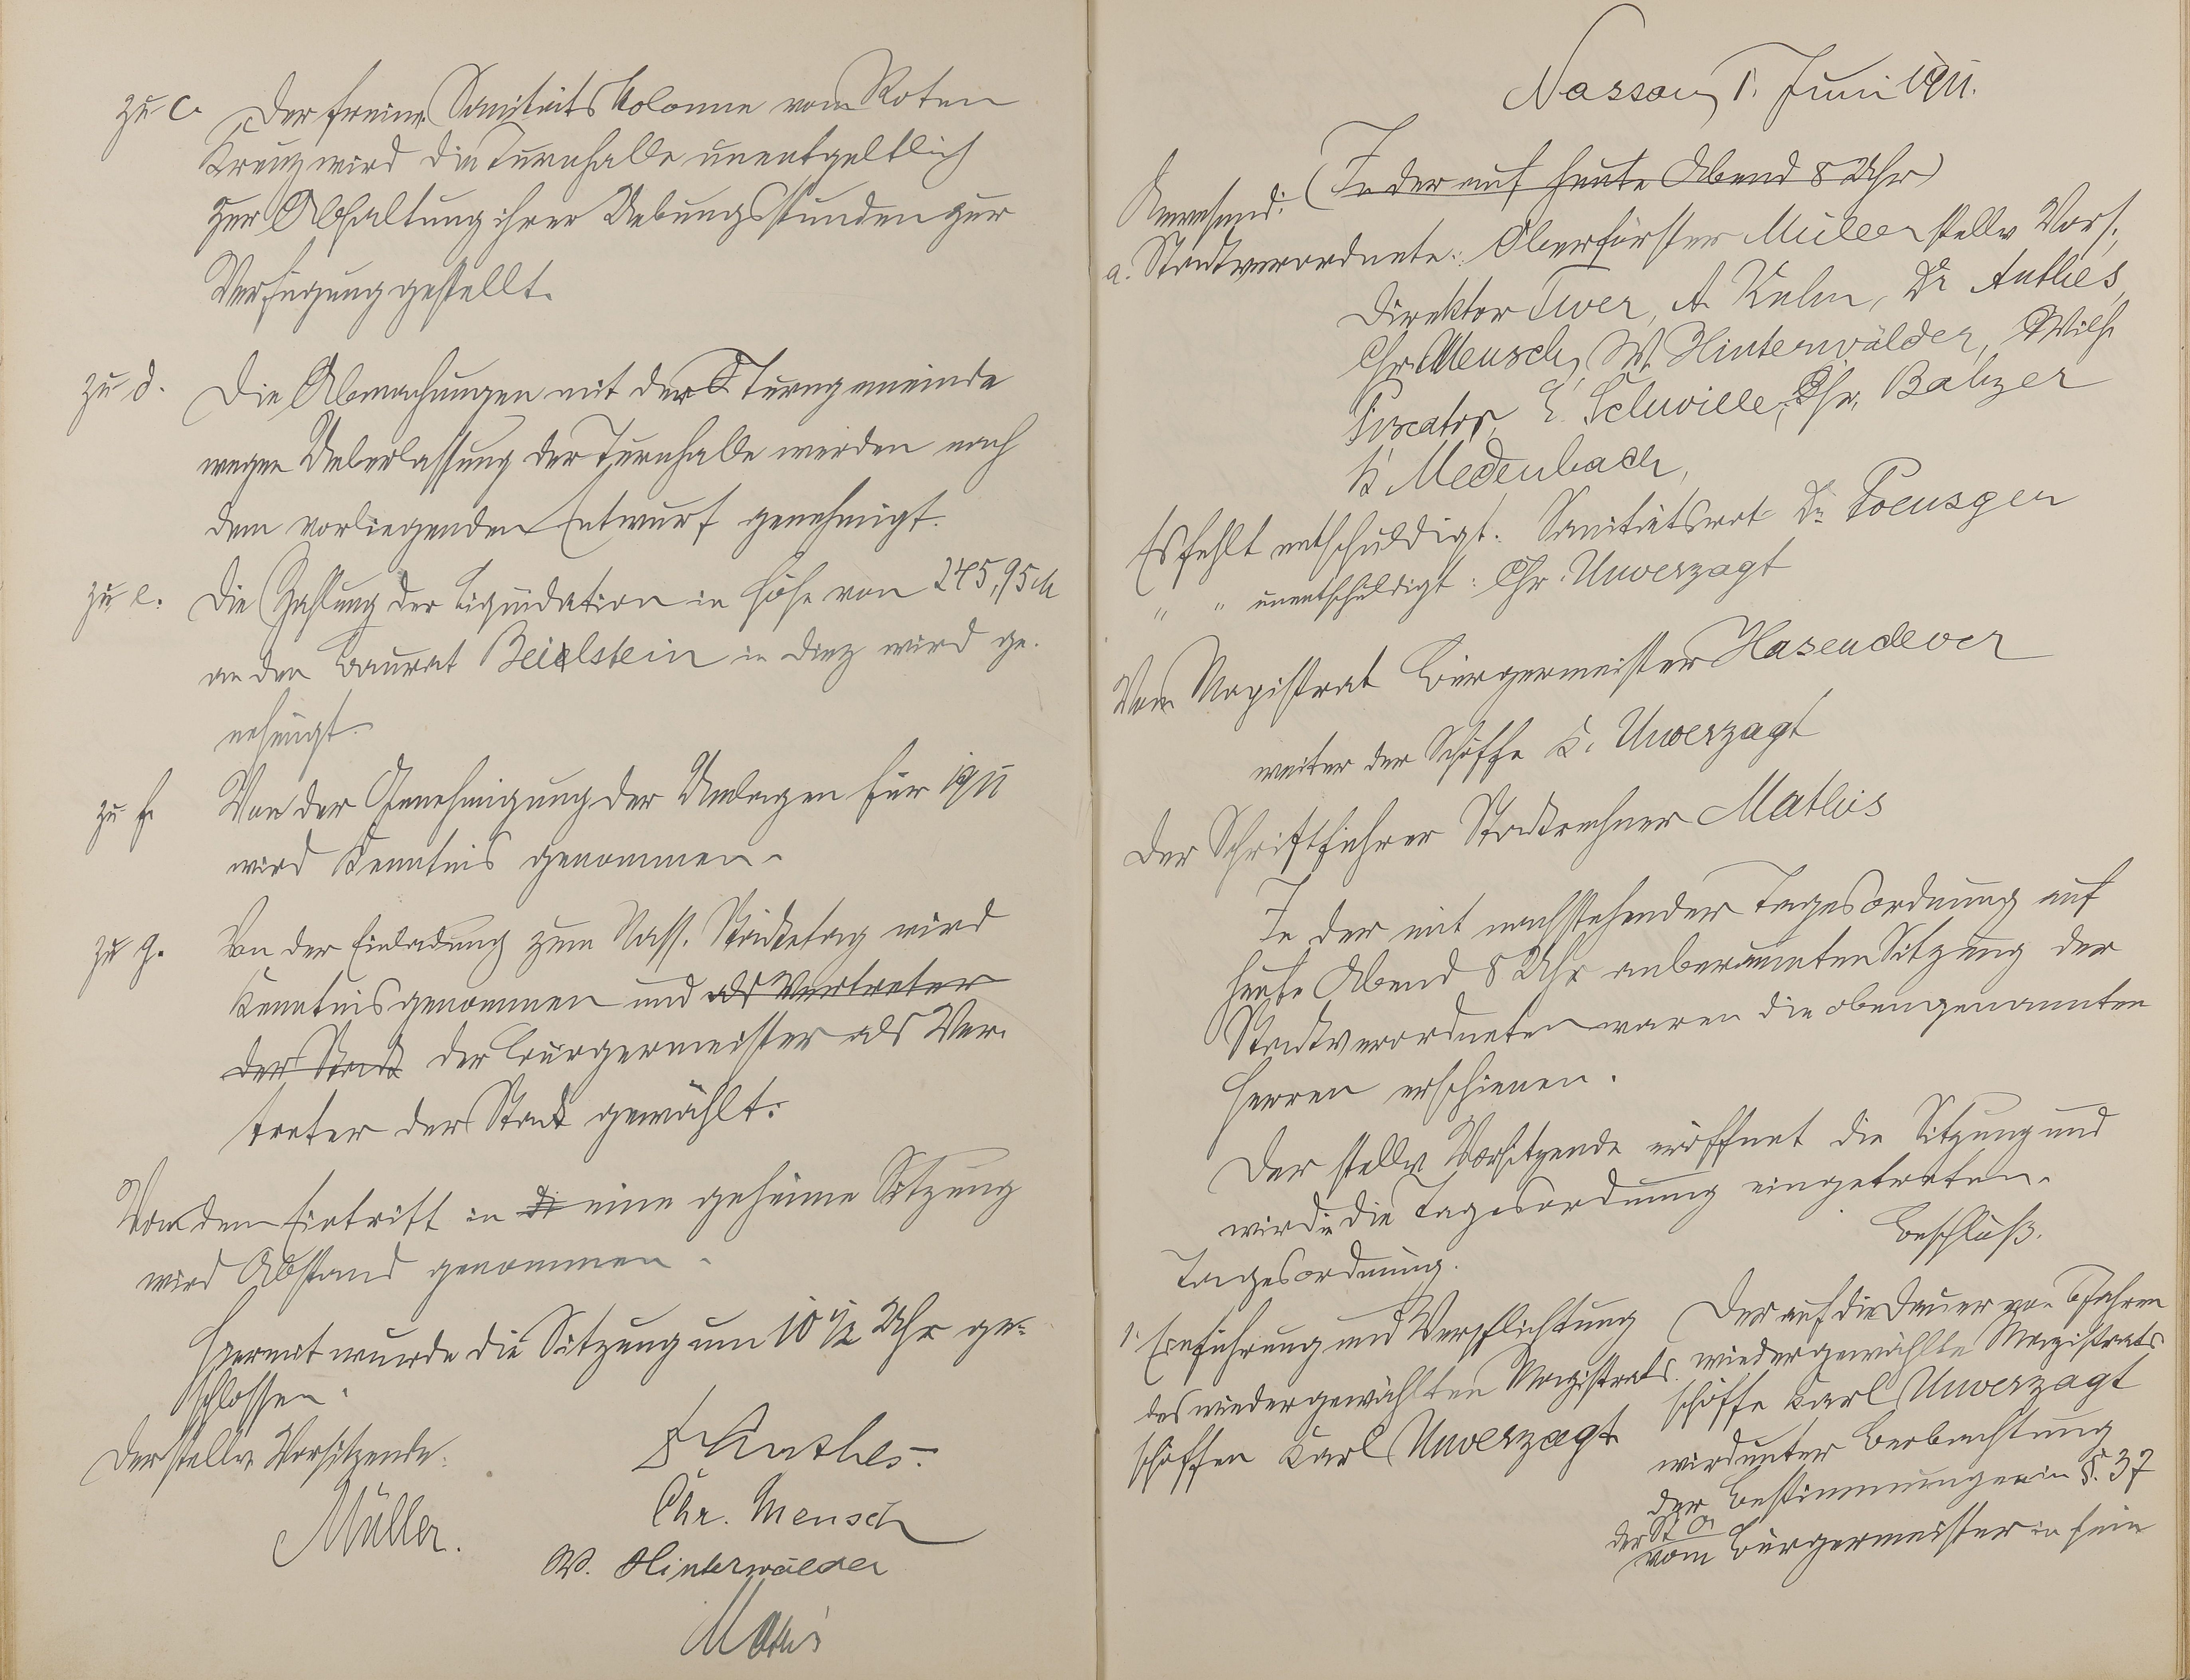 zu c. Der freiw. Sanitäts Kolonne vom Roten
Kreuz wird die Turnhalle unentgeltlich
zur Abhaltung ihrer Uebungsstunden zur
Verfügung gestellt.
zu d. Die Abmachungen mit der Turngemeinde
wegen Ueberlassung der Turnhalle werden nach
dem vorliegenden Entwurf genehmigt.
zu e. Die Zahlung der Liquidation in Höhe von 245,95 M
an den Baurat Beielstein in Diez wird ge-
nehmigt.
zu f. Von der Genehmigung der Umlagen für 1911
wird Kenntnis genommen.
zu g. Von der Einladung zum Nass. Städtetag wird
Kenntnis genommen und als Vertreter
der Stadt der Bürgermeister als Ver-
treter der Stadt gewählt.
Von dem Eintritt in die eine geheime Sitzung
wird Abstand genommen.
Hiermit wurde die Sitzung um 10 1/2 Uhr ge-
schlossen.
Der stellv. Vorsitzende.
Müller.
Anthes.
Chr. Mensch
W. Hinterwälder
Mathis
Nassau, 1. Juni 1911.
Anwesend: (In der auf heute Abend 8 Uhr)
a. Stadtverordnete: Oberförster Müller stellv. Vors.,
Direktor Twer, A. Kuhn, Dr Anthes,
Chr. Mensch, W. Hinterwälder, Wilh.
Piscator, E. Schwille, Chr. Balzer
K Medenbach,
Es fehlt entschuldigt: Sanitätsrat Dr. Poensgen
" " unentschuldigt: Chr. Unverzagt
Vom Magistrat Bürgermeister Hasenclever
weiter der Schöffe K. Unverzagt
Der Schriftführer Stadtrechner Mathis
In der mit nachstehender Tagesordnung auf
heute Abend 8 Uhr anberaumten Sitzung der
Stadtverordneten waren die obengenannten
Herren erschienen.
Der stellv. Vorsitzende eröffnet die Sitzung und
wird in die Tagesordnung eingetreten.
Beschluß.
Tagesordnung.
1. Einführung und Verpflichtung
des wiedergewählten Magistrats-
schöffen Karl Unverzagt
Der auf die Dauer von 6 Jahren
wiedergewählte Magistrats
schöffe Karl Unverzagt
wird unter Beobachtung
der Bestimmungen in §. 37
der St. O.
vom Bürgermeister in sein